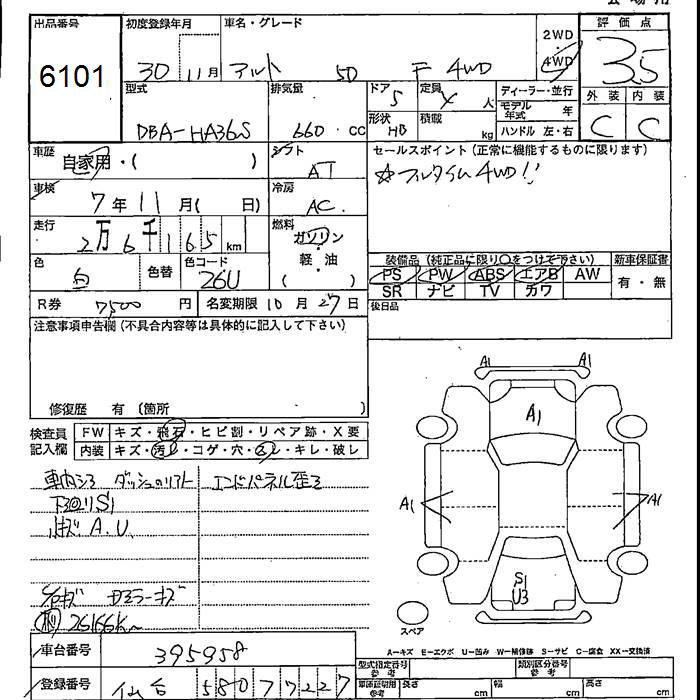 出品番号 初度登録年月 車名・グレード 2WD 評価点
6101 30 11月 アルト 5D F 4WD 4WD 3.5
型式 排気量 ドア 5 定員 人 ディーラー・並行 外装 内装
DBA-HA36S 660 CC 形状 HB 積載 kg モデル年式 年 C C
ハンドル 左・右
車歴 自家用・( ) シフト AT セールスポイント (正常に機能するものに限ります)
☆フルタイム4WD!!
車検 7年 11月( 日) 冷房 AC
走行 2万6千165 km 燃料 ガソリン・軽油 ( )
装備品 (純正品に限り○をつけて下さい) 新車保証書
色 白 色替 色コード 26U PS PW ABS エアB AW 有・無
SR ナビ TV カワ
R券 7500 円 名変期限 10月 27日 後日品
注意事項申告欄 (不具合内容等は具体的に記入して下さい)
修復歴 有 (箇所 )
検査員記入欄 FW キズ・飛石・ヒビ割・リペア跡・X要
内装 キズ・汚レ・コゲ・穴・スレ・キレ・破レ
A1 A1
A1
A1 A1
車内シミ ダッシュのリフト エンドパネル歪ミ
下回リS1
小キズ A.U.
S1
U3
ドアミラーキズ
26166K~
スペア
A=キズ E=エクボ U=凹み W=補修跡 S=サビ C=腐食 XX=交換済
車台番号 395958 型式指定番号 参考 類別区分番号 参考
登録番号 仙台 580 7 7227 車庫証明用 参考 長さ cm 幅 cm 高さ cm